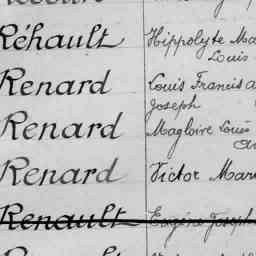 Réhault Hippolyte Ma
Louis
Renard Louis Francis a
Joseph
Renard Magloire Louis
Renard Victor Mar
Renault Eugène Joseph